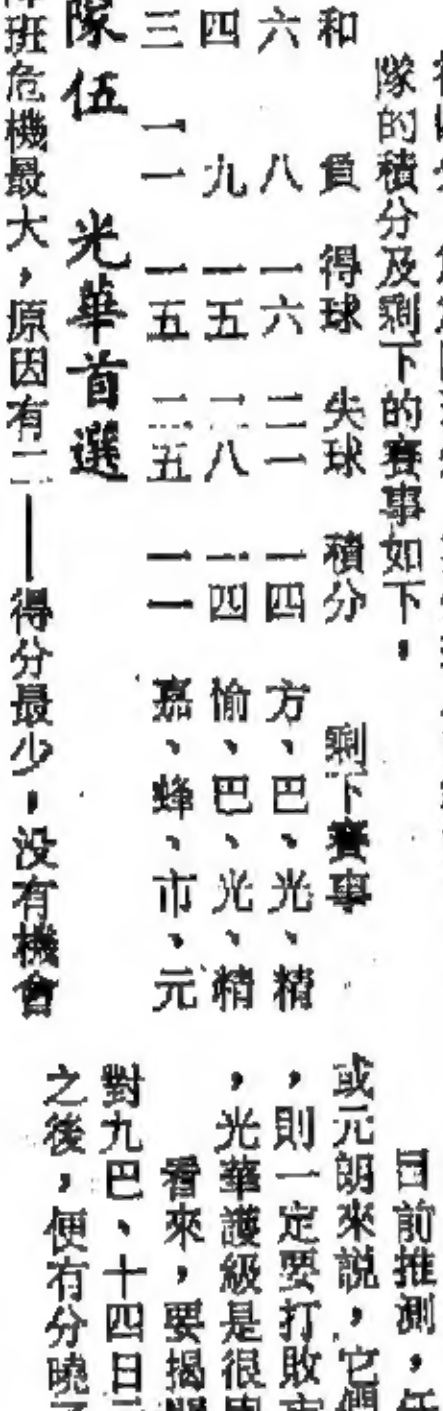 隊的積分及剩下的賽事如下，
和 負 得球 失球 積分 剩下賽事
六 八 一六 二一 一四 方、巴、光、精
四 九 一五 二八 一四 愉、巴、光、精
三 一一 一五 三五 一一 嘉、蜂、市、元
隊伍 光華首選
班危機最大，原因有二——得分最少，没有機會
目前推測，任
或元朗來說，它們
，則一定要打敗
，光華護級是很
看來，要揭
對九巴、十四日
之後，便有分曉了